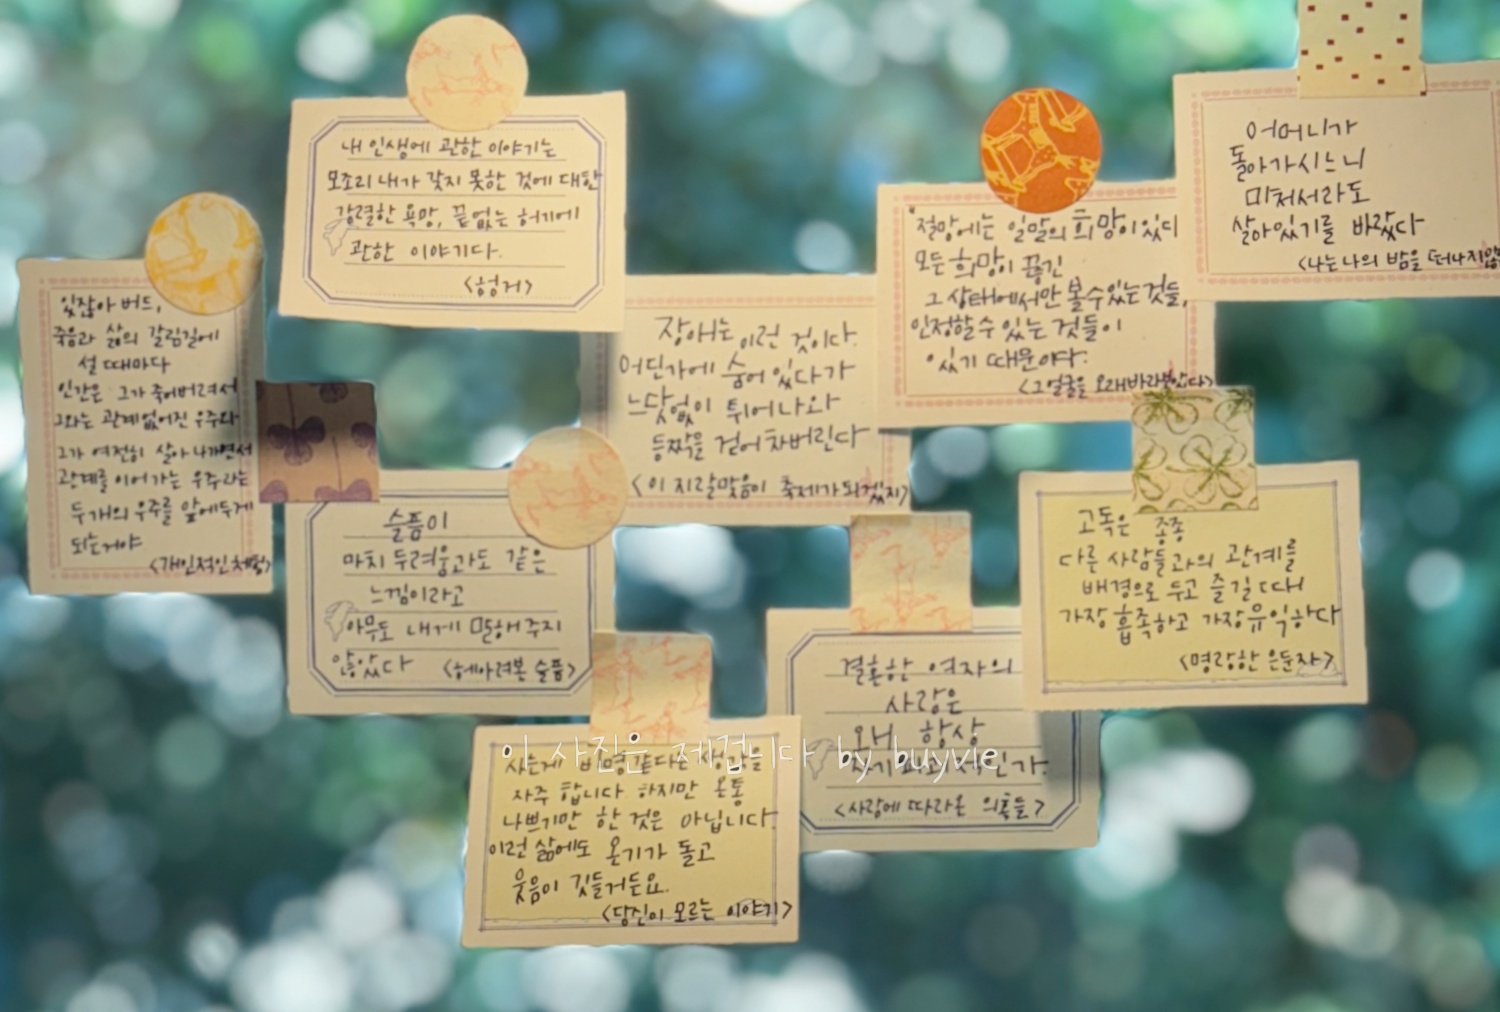 내 인생에 관한 이야기는
모조리 내가 갖지 못한 것에 대한
강렬한 욕망, 끝없는 허기에
관한 이야기다.
<헝거>
어머니가
돌아가시느니
미쳐서라도
살아있기를 바랐다
<나는 나의 밤을 떠나지않
절망에는 일말의 희망이 있다
모든 희망이 끊긴
그 상태에서만 볼 수 있는 것들,
인정할 수 있는 것들이
있기 때문이다.
<그 얼굴을 오래 바라보았다>
있잖아 버드,
죽음과 삶의 갈림길에
설 때마다
인간은 그가 죽어버려서
그와는 관계없어진 우주와
그가 여전히 살아 나가면서
관계를 이어가는 우주라는
두 개의 우주를 앞에두게
되는거야
<개인적인 체험>
장애는 이런 것이다.
어딘가에 숨어 있다가
느닷없이 튀어나와
등짝을 걷어차버린다
<이 지랄맞음이 축제가 되겠지>
슬픔이
마치 두려움과도 같은
느낌이라고
아무도 내게 말해주지
않았다
<헤아려본 슬픔>
고독은 종종
다른 사람들과의 관계를
배경으로 두고 즐길 때
가장 흡족하고 가장유익하다
<명랑한 은둔자>
결혼한 여자의
사랑은
왜 항상
인가.
<사랑에 따라온 의혹들>
사는게 비명같다는 생각을
자주 합니다 하지만 온통
나쁘기만 한 것은 아닙니다.
이런 삶에도 온기가 돌고
웃음이 깃들거든요.
<당신이 모르는 이야기>
이 사진은 제겁니다 by buyvie